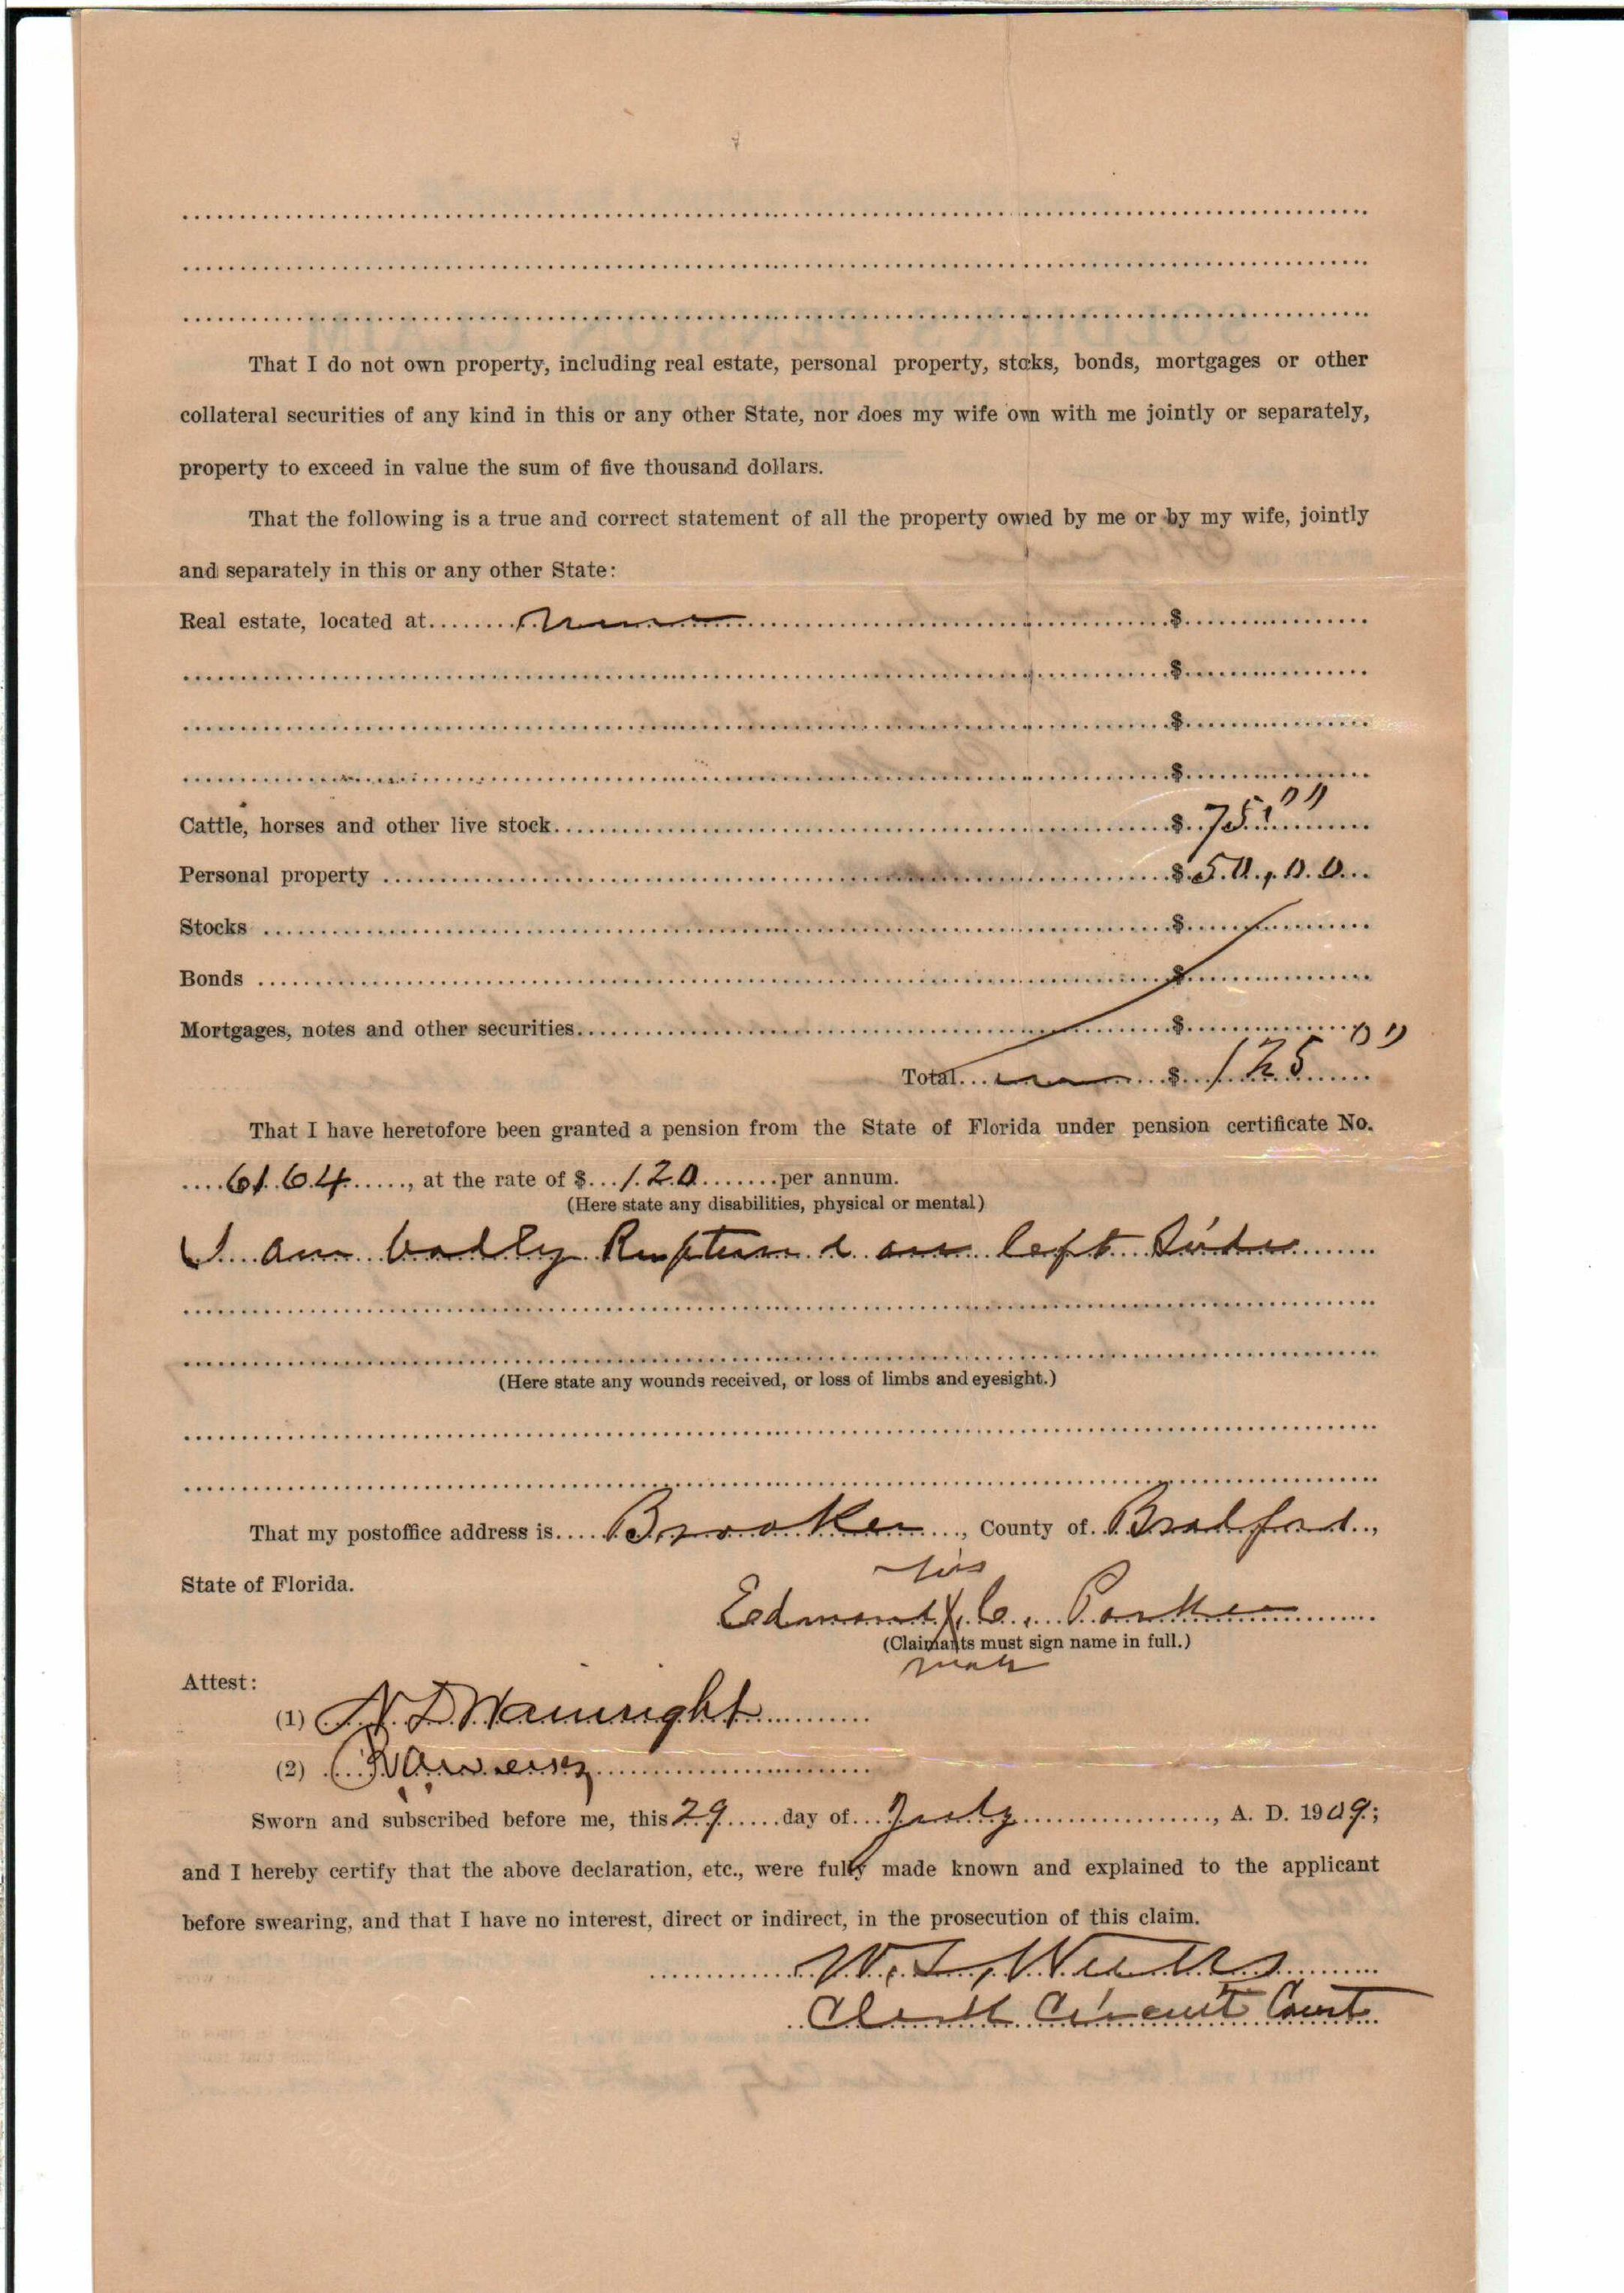 That I do not own property, including real estate, personal property, stocks, bonds, mortgages or other
collateral securities of any kind in this or any other State, nor does my wife own with me jointly or separately,
property to exceed in value the sum of five thousand dollars.
That the following is a true and correct statement of all the property owned by me or by my wife, jointly
and separately in this or any other State:
Real estate, located at........none........$........
$........
$........
$........
Cattle, horses and other live stock........$ 75.00
Personal property........$ 50.00
Stocks........$........
Bonds........$........
Mortgages, notes and other securities........$........
Total........$ 125 00
That I have heretofore been granted a pension from the State of Florida under pension certificate No.
6164, at the rate of $ 120 per annum.
(Here state any disabilities, physical or mental)
I am badly Ruptured on left Side
(Here state any wounds received, or loss of limbs and eyesight.)
That my postoffice address is Brooker, County of Bradford,
State of Florida.
his
Edmond X C. Parker
(Claimants must sign name in full.)
mark
Attest:
(1) N. D Wainright
(2)
Sworn and subscribed before me, this 29 day of July, A. D. 1909;
and I hereby certify that the above declaration, etc., were fully made known and explained to the applicant
before swearing, and that I have no interest, direct or indirect, in the prosecution of this claim.
Clerk Circuit Court